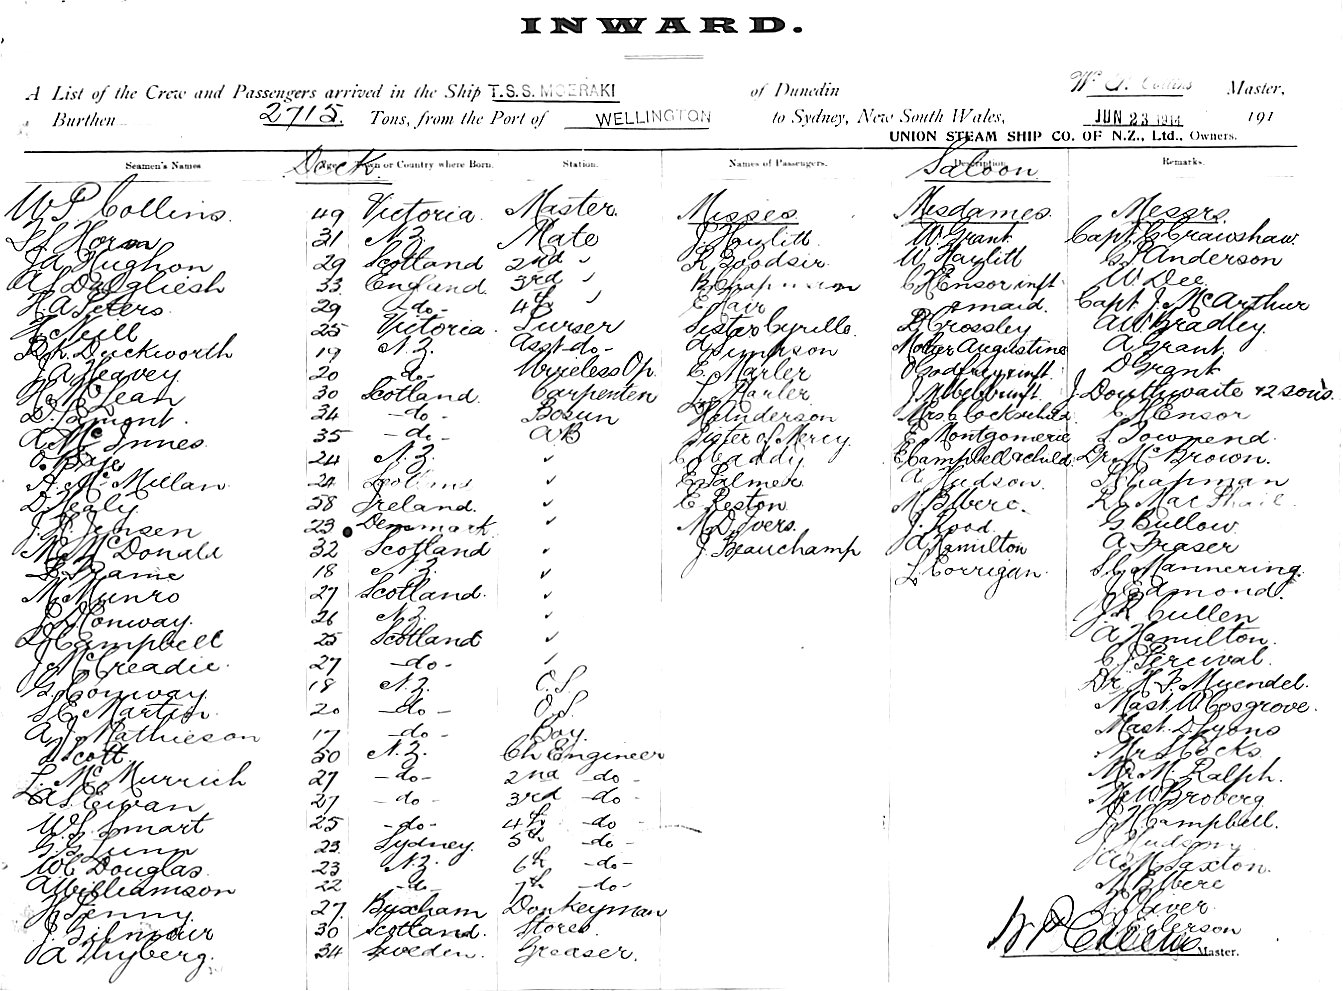 INWARD.
A List of the Crew and Passengers arrived in the Ship T.S.S. MOERAKI of Dunedin W. P. Collins Master,
Burthen 2715. Tons, from the Port of WELLINGTON to Sydney, New South Wales, JUN 23 1914 191
UNION STEAM SHIP CO. OF N.Z., Ltd., Owners.
Deck Saloon
Seamen's Names Age Town or Country where Born. Station. Names of Passengers. Description. Remarks.
W P Collins. 49 Victoria. Master. Misses Mesdames. Messrs.
Horn 31 N.Z. Mate J. Haylitt W. Grant Capt. G Crawshaw.
Hughon 29 Scotland 2nd " R. Goodsir W. Haylitt G. Anderson
A Dalgliesh 33 England 3rd " B Chapman C Ensor inft W. Dee
H A Peters. 29 -do- 4th " E. Fair & maid. Capt J. McArthur
Neill 25 Victoria. Purser Sister Cyrille. Crossley A W Bradley.
Duckworth 19 N.Z. Asst -do- Simpson Mother Augustine A Grant.
J A Heavey 20 do- Wireless Op. E. Marler Godfrey & inft. D Grant
McLean 30 Scotland. Carpenter L. Marler J. Webb & inft. J. Douthwaite & 2 sons.
D. Lamont. 34 -do- Bosun Henderson Mrs Cocks & child C Ensor
A McInnes. 35 -do- AB Sister of Mercy. E. Montgomerie Townend.
24 N.Z. " C. Maddy E Campbell & child Dr. McBrown.
A. McMillan 24 Scotland " E. Palmer A Hudson. Chapman
D Healy. 58 Ireland. " E Reston M Elberc. MacPhail
J. Jensen 23 Denmark. " M D Ivers. J. Hood. G Bullow.
McDonald 32 Scotland " J Beauchamp A Hamilton A Fraser
Frame 18 N.Z. " L. Corrigan. Mannering.
M Munro 27 Scotland. " Edmond.
Conway. 26 N.Z. " J. R. Cullen
D Campbell 25 Scotland " A Hamilton.
J McCreadie. 27 -do- " C J. Percival.
G. Conway. 18 N.Z. O.S. Dr. H F Muendel.
S E Martin. 20 -do- O.S. Mast. W Cosgrove.
A J Mathieson 17 -do- Boy. Mast. D Lyons
Scott. 50 N.Z. Ch Engineer Mr Cocks
L. McMurrich 27 -do- 2nd -do- Mr M. Ralph.
A S Ewan 27 -do- 3rd -do- W Broberg.
W S Smart 25 -do- 4th -do J. H Campbell.
G. G Lunn 23 Sydney. 5th -do- Hudson
W C Douglas. 23 N.Z. 6th -do- Saxton.
A Williamson 22 -do- 7th -do- M Elberc
H Penny. 27 Brixham Donkeyman Oliver
J. Gilmour 30 Scotland. Stores. Ellerson
A Thyberg. 34 Sweden. Greaser. W P Collins Master.